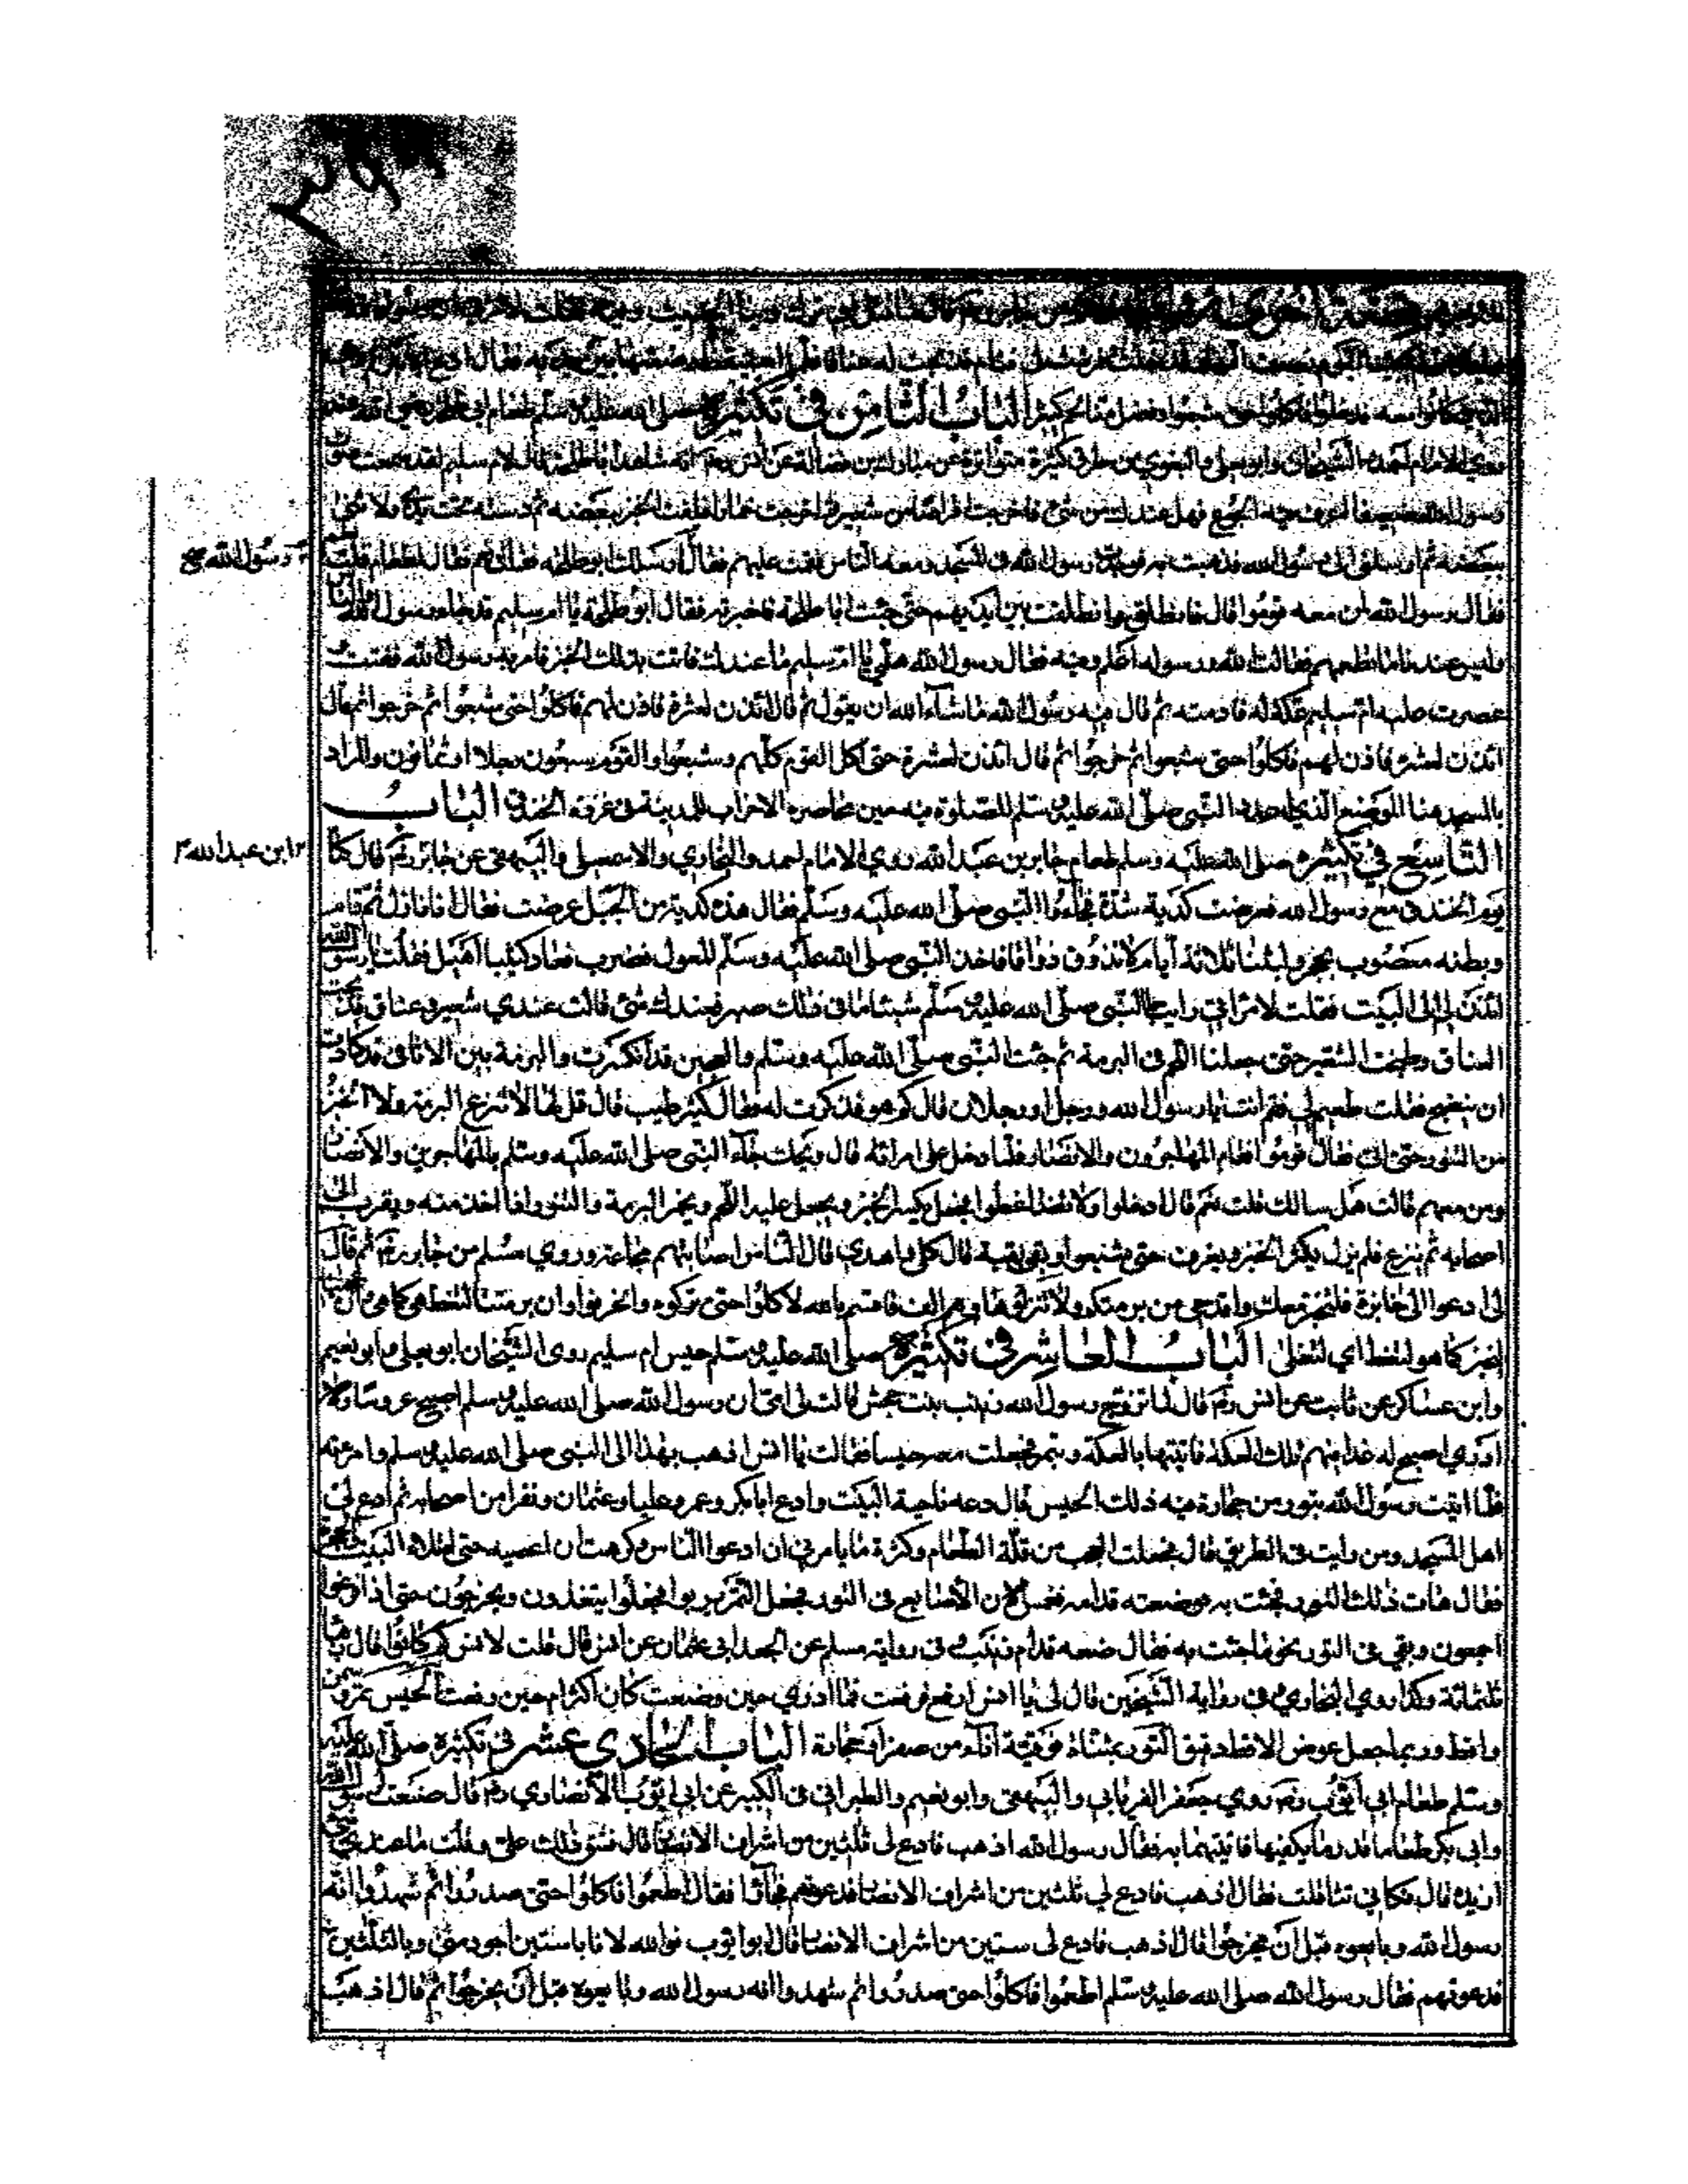 الباب الثامن في تكثيره صلى الله عليه وسلم طعام ابي طلحة رضي الله عنه
روي الامام احمد والشيخان وابو يعلي والبغوي من طرق كثيرة متواترة عن مبارك بن فضالة عن انس رضم انه شاهد ابا طلحة قال لام سليم لقد سمعت صوت
رسول الله ضعيفا اعرف فيه الجوع فهل عندك من شئ فاخرجت اقراصا من شعير ثم اخرجت خمارا فلفت الخبز ببعضه ثم دسته تحت يدي ولاثتني
ببعضه ثم ارسلتني الى رسول الله فذهبت به فوجدت رسول الله في المسجد ومعه الناس فقمت عليهم فقال ارسلك ابو طلحة فقلت نعم فقال لطعام قلت نعم
رسول الله صح
فقال رسول الله لمن معه قوموا قال فانطلق وانطلقت بين ايديهم حتى جئت ابا طلحة فاخبرته فقال ابو طلحة يا ام سليم قد جاء رسول الله بالناس
وليس عندنا ما نطعمهم فقالت الله ورسوله اعلم وفيه فقال رسول الله هلمي يا ام سليم ما عندك فاتت بذلك الخبز فامر به رسول الله ففتت و
عصرت عليه ام سليم عكة له فادمته ثم قال فيه رسول الله ما شاء الله ان يقول ثم قال ائذن لعشرة فاذن لهم فاكلوا حتى شبعوا ثم خرجوا ثم قال
ائذن لعشرة فاذن لهم فاكلوا حتى شبعوا ثم خرجوا ثم قال ائذن لعشرة حتى اكل القوم كلهم وشبعوا والقوم سبعون رجلا او ثمانون والمراد
بالمسجد هنا الموضع الذي اعده النبي صلى الله عليه وسلم للصلوة فيه حين محاصرة الاحزاب للمدينة في غزوة الخندق الباب
التاسع في تكثيره صلى الله عليه وسلم طعام جابر بن عبد الله روي الامام احمد والبخاري والاسمعيلي والبيهقي عن جابر رضم قال كنا
ابن عبد الله
يوم الخندق مع رسول الله فعرضت كدية شدة فجاءوا النبي صلى الله عليه وسلم فقال هذه كدية من الجبل عرضت فقال انا نازل ثم قام
وبطنه معصوب بحجر ولبثنا ثلاثة ايام لا نذوق ذواقا فاخذ النبي صلى الله عليه وسلم المعول فضرب فعاد كثيبا اهيل فقلت يا رسول الله
ائذن لي الى البيت فقلت لامراتي رايت بالنبي صلى الله عليه وسلم شيئا ما في ذلك صبر فعندك شئ قالت عندي شعير وعناق فذبحت
العناق وطحنت الشعير حتى جعلنا اللحم في البرمة ثم جئت النبي صلى الله عليه وسلم والعجين قد انكسرت والبرمة بين الاثافي قد كادت
ان ينضج فقلت طعيم لي فقم انت يا رسول الله ورجل او رجلان قال كم هو فذكرت له فقال كثير طيب قال قل لها لا تنزع البرمة ولا الخبز
من التنور حتى اتي فقال قوموا فقام المهاجرون والانصار فلما دخل على امراته قال ويحك جاء النبي صلى الله عليه وسلم بالمهاجرين والانصار
ومن معهم قالت هل سالك قلت نعم قال ادخلوا ولا تضاغطوا فجعل يكسر الخبز ويجعل عليه اللحم ويخمر البرمة والتنور اذا اخذ منه ويقرب الى
اصحابه ثم ينزع فلم يزل يكسر الخبز ويغرف حتى شبعوا وبقي بقية قال كلي واهدي فان الناس اصابتهم مجاعة وروي مسلم من جابر رضم ثم قال
لي ادعوا الي خابزة فلتخبز معك واقدحي من برمتكم ولا تنزلوها وهم الف فاقسم بالله لاكلوا حتى تركوه وانحرفوا وان برمتنا لتغط كما هي وان عجيننا
ليخبز كما هو لتغط اي لتغلي الباب العاشر في تكثيره صلى الله عليه وسلم حيس ام سليم روى الشيخان ابو يعلي وابو نعيم
وابن عساكر عن ثابت عن انس رضم قال لما تزوج رسول الله زينب بنت جحش قالت لي امي ان رسول الله صلى الله عليه وسلم اصبح عروسا ولا
ادري اصبح له غدا فهم تلك العكة فاتيتها بالعكة وبتمر فجعلت معه حيسا فقالت يا انس اذهب بهذا الى النبي صلى الله عليه وسلم وامرءته
فلما اتيت رسول الله بتور من حجارة فيه ذلك الحيس قال دعه ناحية البيت وادع ابا بكر وعمر وعليا وعثمان ونفرا من اصحابه ثم ادع لي
اهل المسجد ومن رايت في الطريق قال فجعلت اتعجب من قلة الطعام وكثرة ما يامرني ان ادعوا الناس وكرهت ان اعصيه حتى امتلاء البيت والحجرة
فقال هات ذلك التور فجئت به فوضعته قدامه فغمس ثلاث الاصابع في التور فجعل التمر يربوا فجعلوا يتغدون ويخرجون حتى اذا فرغوا
اجمعون وبقي في التور نحو ما جئت به فقال ضعه قدام زينب في رواية مسلم عن الجعد ابي عثمان عن انس قال قلت لانس كم كانوا قال زهاء
ثلثمائة وكذا روي البخاري في رواية الشيخين قال لي يا انس ارفع فرفعت فما ادري حين وضعت كان اكثر ام حين رفعت الحيس تمر وسمن
واقط وربما جعل عوض الاقط دقيق التور بمثناة فوقية اناء من صفر او حجارة الباب الحادي عشر في تكثيره صلى الله عليه
وسلم طعام ابي ايوب رضم روي جعفر الفريابي والبيهقي وابو نعيم والطبراني في الكبير عن ابي ايوب الانصاري رضم قال صنعت لرسول الله
وابي بكر طعاما قدر ما يكفيها فاتيتهما به فقال رسول الله اذهب فادع لي ثلثين من اشراف الانصار قال فشق ذلك علي وقلت ما عندي شئ
ازيده قال فكاني تثاقلت فقال اذهب فادع لي ثلثين من اشراف الانصار فدعوتهم فجاؤا فقال اطعموا فاكلوا حتى صدروا ثم شهدوا انه
رسول الله وبايعوه قبل ان يخرجوا قال اذهب فادع لي ستين من اشراف الانصار قال ابو ايوب فوالله لانا بالستين اجود مني وبالثلثين
فدعوتهم فقال رسول الله صلى الله عليه وسلم اطعموا فاكلوا حتى صدروا ثم شهدوا انه رسول الله وبايعوه قبل ان يخرجوا ثم قال اذهب